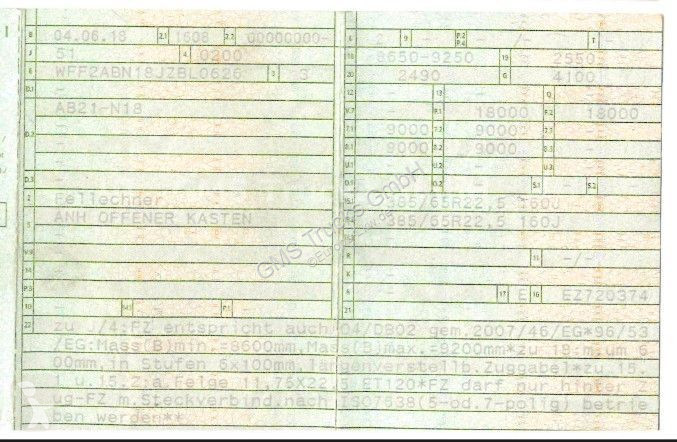 B 04.06.18 2.1 1608 2.2 00000000-
J 51 4 0200
E WFF2ABN18JZBL0626 3 3
D.1 -
AB21-N18
D.2 -
D.3 -
2 Fellechner
5 ANH OFFENER KASTEN
V.9 -
14 -
P.3 -
10 - P.1 -
L 2 9 - P.2 P.4 - /- T -
18 8650-9250 19 2550
20 2490 G 4100
12 - 13 - Q -
V.7 - F.1 18000 F.2 18000
7.1 9000 7.2 9000 7.3 -
8.1 9000 8.2 9000 8.3 -
U.1 - U.2 - U.3 -
D.9 - O.2 - S.1 - S.2 -
15.1 385/65R22,5 160J
385/65R22,5 160J
R - 11 -/-
K -
6 - 17 E 16 EZ720374
21 -
22 zu J/4:FZ entspricht auch 04/DB02 gem.2007/46/EG*96/53
/EG:Mass(B)min.=8600mm,Mass(B)max.=9200mm*zu 18:m.um 6
00mm,in Stufen 6x100mm,längenverstellb.Zuggabel*zu 15.
1 u.15.2:a.Felge 11,75X22,5 ET120*FZ darf nur hinter Z
ug-FZ m.Steckverbind.nach ISO7638(5-od.7-polig) betrie
ben werden**
GMS Trucks GmbH